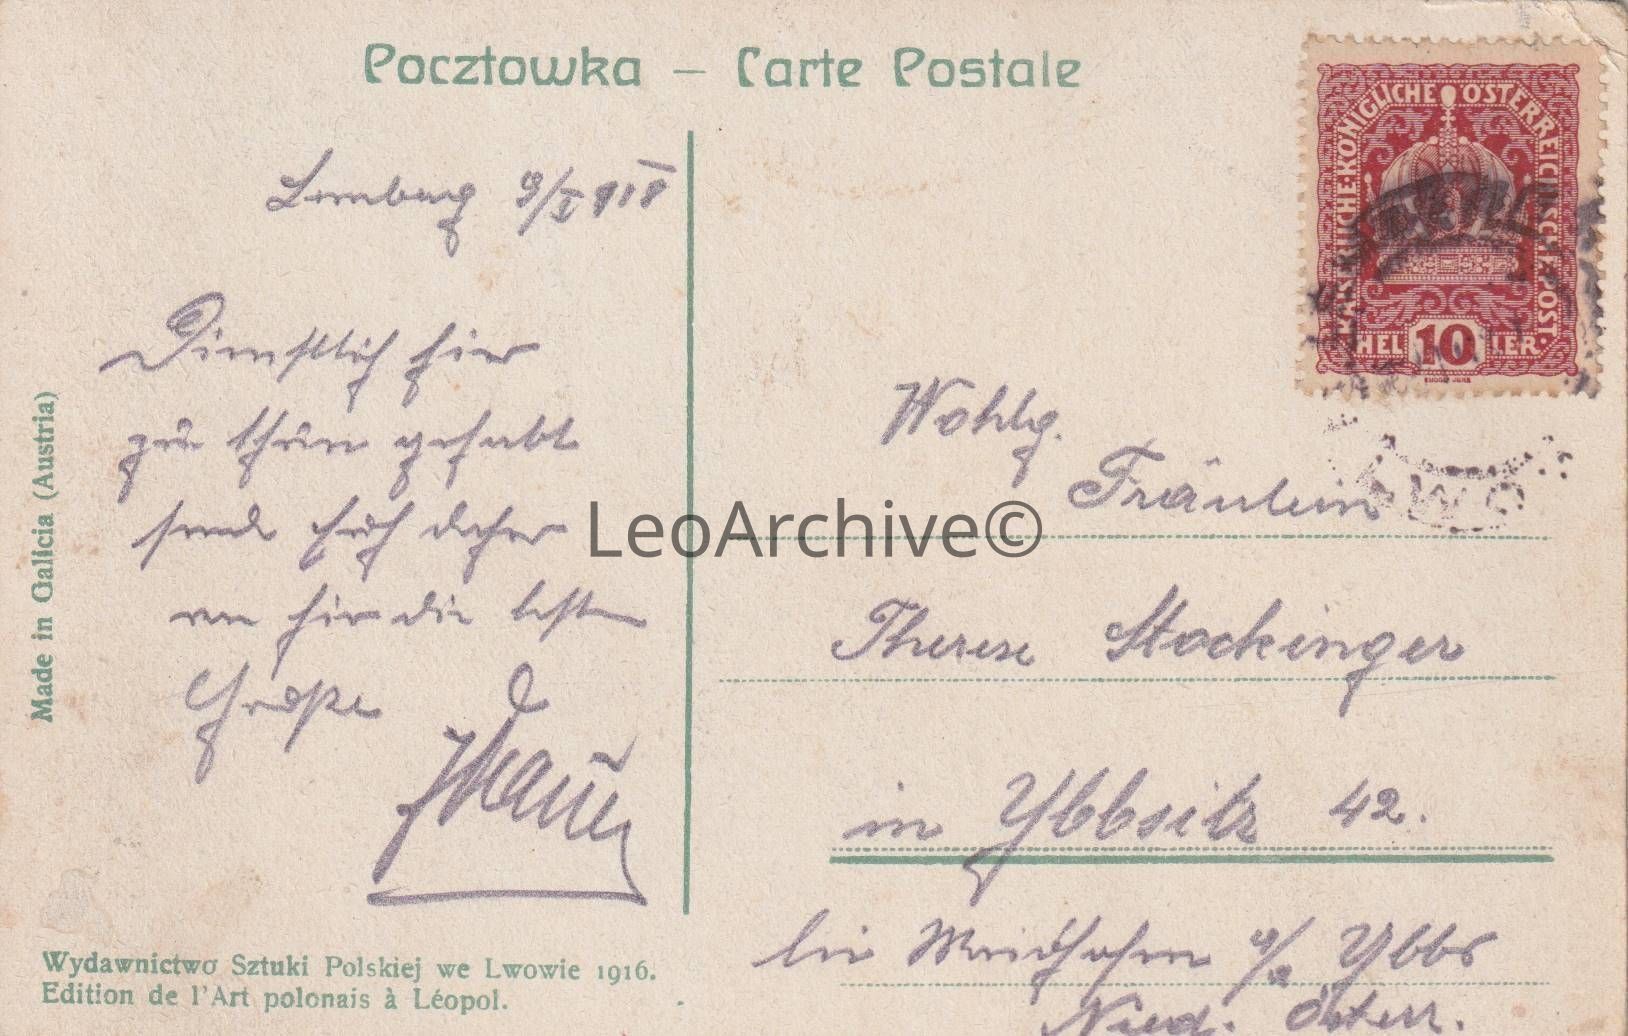 Pocztowka – Carte Postale
KAISERLICHE·KÖNIGLICHE ÖSTERREICHISCHE POST
HELLER
10
Lemberg 9/X 918
Dienstlich hier
zu thun gehabt
sende Euch daher
von hier die besten
Grüße
Wohlg.
Fräulein
Therese Stockinger
in Ybbsitz 42.
bei Waidhofen a/d Ybbs
Nied. Österr.
LWÓW
LeoArchive©
Made in Galicia (Austria)
Wydawnictwo Sztuki Polskiej we Lwowie 1916.
Edition de l'Art polonais à Léopol.